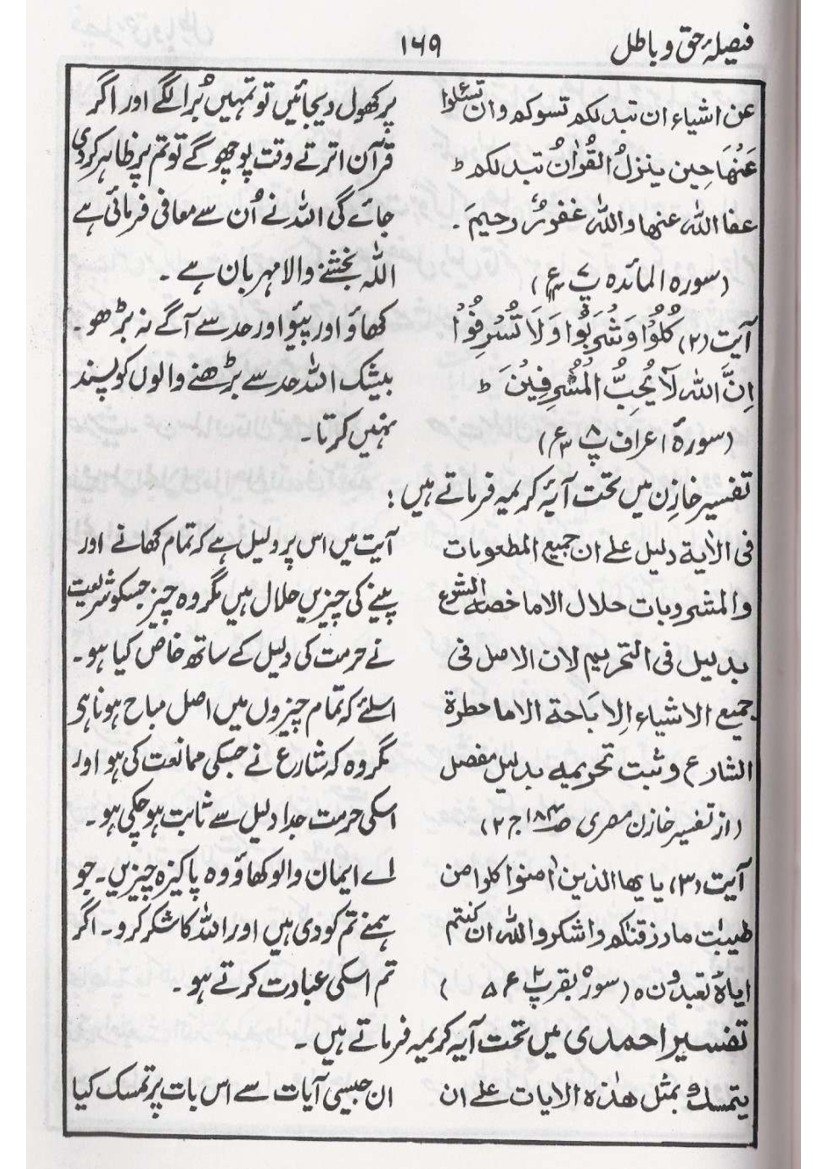 فیصلۂ حق و باطل
۱۶۹
عن اشیاء ان تبدلکم تسوکم وان تسئلوا
عَنْهَا حِین ینزلُ القُرْاٰنُ تبدلکم ط
عفا اللّٰہ عنھا واللّٰہ غفورٌ رحیم۔
(سورہ المائدہ پ ۷ ع ۴)
آیت (۲) کُلُوْا وَشْرَبُوْا وَلَا تُسْرِفُوْا
اِنَّ اللّٰہ لَا یُحِبُّ الْمُسْرِفِیْنَ ط
(سورۂ اعراف پ ۸ ع ۳)
پر کھول دیجائیں تو تمہیں بُرا لگے اور اگر
قرآن اترتے وقت پوچھو گے تو تم پر ظاہر کردی
جائے گی اللّٰہ نے اُن سے معافی فرمائی ہے
اللّٰہ بخشنے والا مہربان ہے ۔
کھاؤ اور پیئو اور حد سے آگے نہ بڑھو۔
بیشک اللّٰہ حد سے بڑھنے والوں کو پسند
نہیں کرتا۔
تفسیر خازن میں تحت آیۂ کریمہ فرماتے ہیں :
فی الاٰیة دلیل علے ان جمیع المطعومات
والمشروبات حلال الاماخصه الشرع
بدلیل فی التحریم لان الاصل فی
جمیع الاشیاء اِلابَاحة الاماحظرة
الشارع وثبت تحریمه بدلیل مفصل
(از تفسیر خازن مصری ص ۱۸۳ ج ۲)
آیت (۳) یا یھا الذین اٰمنوا کلوا من
طیبٰت مارزقنٰکم واشکروا للّٰہ ان کنتم
ایاہ تعبدون ہ (سورہ بقر پ ۲ ع ۵)
آیت میں اس پر دلیل ہے کہ تمام کھانے اور
پینے کی چیزیں حلال ہیں مگر وہ چیز جسکو شریعت
نے حرمت کی دلیل کے ساتھ خاص کیا ہو۔
اسلئے کہ تمام چیزوں میں اصل مباح ہونا ہی
مگر وہ کہ شارع نے جسکی ممانعت کی ہو اور
اسکی حرمت جدا دلیل سے ثابت ہو چکی ہو۔
اے ایمان والو کھاؤ وہ پاکیزہ چیزیں۔ جو
ہمنے تم کو دی ہیں اور اللّٰہ کا شکر کرو۔ اگر
تم اسکی عبادت کرتے ہو۔
تفسیر احمدی میں تحت آیہ کریمہ فرماتے ہیں۔
یتمسك بمثل ھٰذہ الایات علے ان
ان جیسی آیات سے اس بات پر تمسک کیا